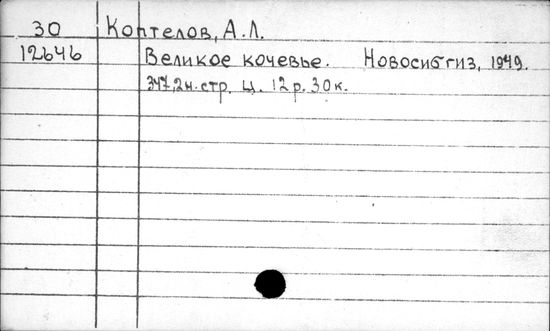 30 Коптелов, А.Л.
12646 Великое кочевье. Новосибгиз, 1949.
347,2н.стр. Ц. 12р. 30к.